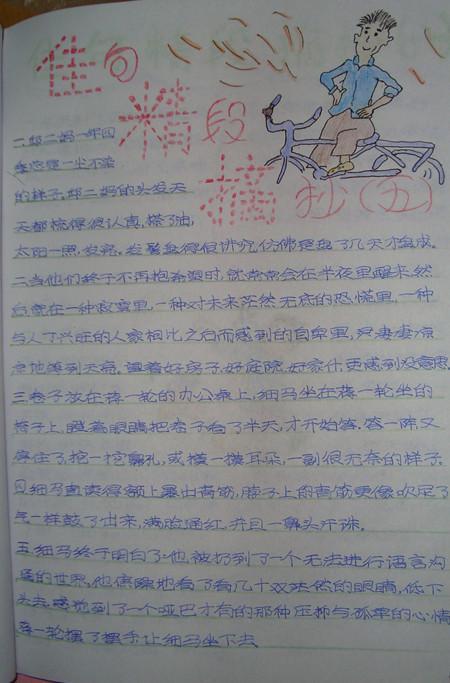 佳句
精段
摘抄(五)
一.邱二妈一年四
季总是一尘不染
的样子.邱二妈的头发天
天都梳得很认真,搽了油,
太阳一照,发亮.发髻盘得很讲究,仿佛是盘了几天才盘成.
二.当他们终于不再抱希望时,就常常会在半夜里醒来,然
后就在一种寂寞里,一种对未来茫然无底的恐慌里,一种
与人丁兴旺的人家相比之后而感到的自卑里,凄凄凉
凉地等到天亮.望着好房子,好庭院,好家什,更感到没意思.
三.卷子放在蒋一轮的办公桌上,细马坐在蒋一轮坐的
椅子上,瞪着眼睛把卷子看了半天,才开始答.答一阵又
停住了,挖一挖鼻孔,或摸一摸耳朵,一副很无奈的样子.
四.细马直读得额上暴出青筋,脖子上的青筋更像吹足了
气一样鼓了出来,满脸通红,并且一鼻头汗珠.
五.细马终于明白了:他被扔到了一个无法进行语言沟
通的世界.他焦躁地看了看几十双茫然的眼睛,低下
头去,感觉到了一个哑巴才有的那种压抑与孤单的心情
蒋一轮摆了摆手,让细马坐下去.